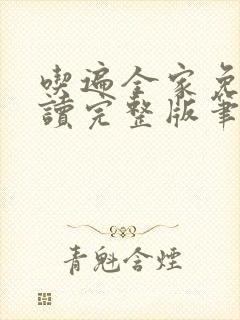 喫遍全家免
讀完整版筆
青魁含煙